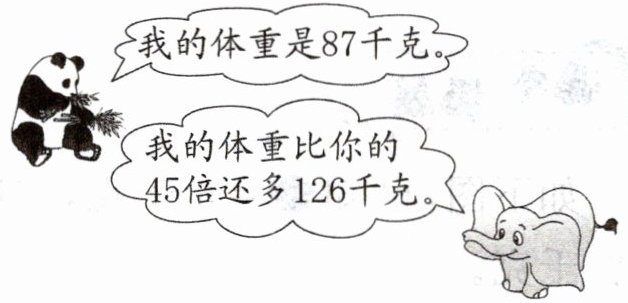 我的体重是87千克。
我的体重比你的
45倍还多126千克。